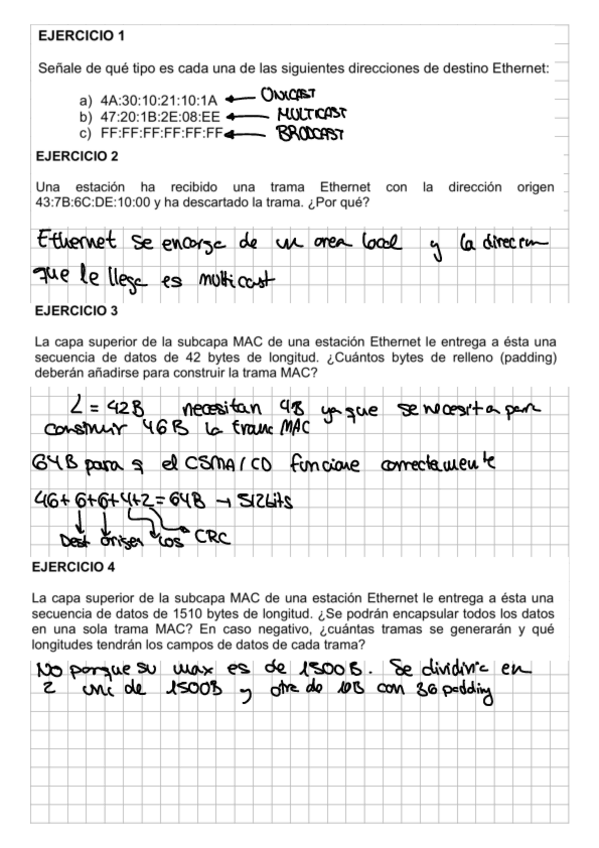 EJERCICIO 1
Señale de qué tipo es cada una de las siguientes direcciones de destino Ethernet:
a) 4A:30:10:21:10:1A ← UNICAST
b) 47:20:1B:2E:08:EE ← MULTICAST
c) FF:FF:FF:FF:FF:FF ← BRODCAST
EJERCICIO 2
Una estación ha recibido una trama Ethernet con la dirección origen
43:7B:6C:DE:10:00 y ha descartado la trama. ¿Por qué?
Ethernet se encarga de un area local y la direccion
que le llega es multicast
EJERCICIO 3
La capa superior de la subcapa MAC de una estación Ethernet le entrega a ésta una
secuencia de datos de 42 bytes de longitud. ¿Cuántos bytes de relleno (padding)
deberán añadirse para construir la trama MAC?
L = 42B necesitan 4B ya que se necesita para
construir 46B la trama MAC
64B para q el CSMA/CD funcione correctamente
46+6+6+4+2=64B → 512bits
Dest origen CRC
EJERCICIO 4
La capa superior de la subcapa MAC de una estación Ethernet le entrega a ésta una
secuencia de datos de 1510 bytes de longitud. ¿Se podrán encapsular todos los datos
en una sola trama MAC? En caso negativo, ¿cuántas tramas se generarán y qué
longitudes tendrán los campos de datos de cada trama?
No porque su max es de 1500B. Se dividiria en
2 una de 1500B y otra de 10B con 36 padding